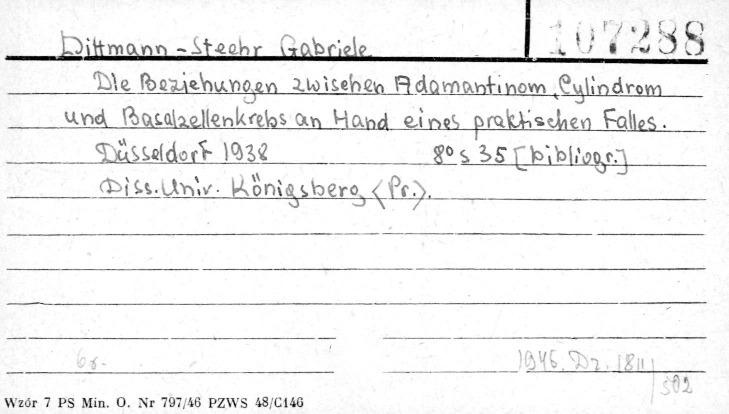 Dittmann-Steehr Gabriele
107288
Die Beziehungen zwischen Adamantinom, Cylindrom
und Basalzellenkrebs an Hand eines praktischen Falles.
Düsseldorf 1938 8° s 35 [bibliogr.]
Diss. Univ. Königsberg, <Pr.>.
1946. Dz.
302
Wzór 7 PS Min. O. Nr 797/46 PZWS 48/C146